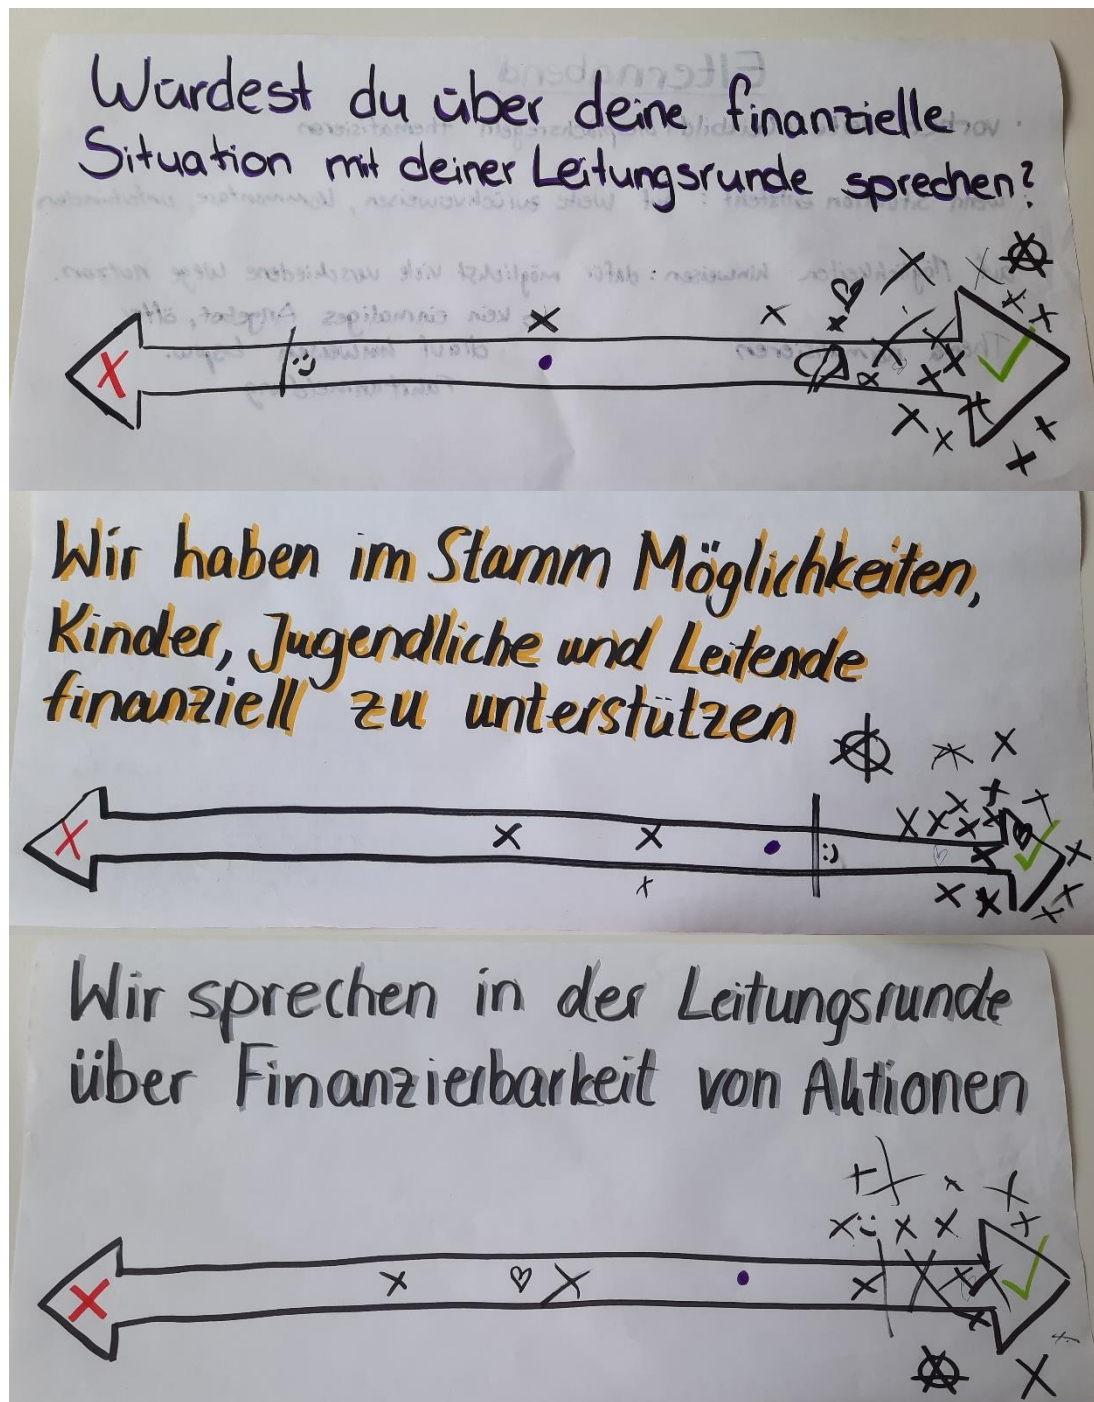 Würdest du über deine finanzielle
Situation mit deiner Leitungsrunde sprechen?
Wir haben im Stamm Möglichkeiten,
Kinder, Jugendliche und Leitende
finanziell zu unterstützen
Wir sprechen in der Leitungsrunde
über Finanzierbarkeit von Aktionen